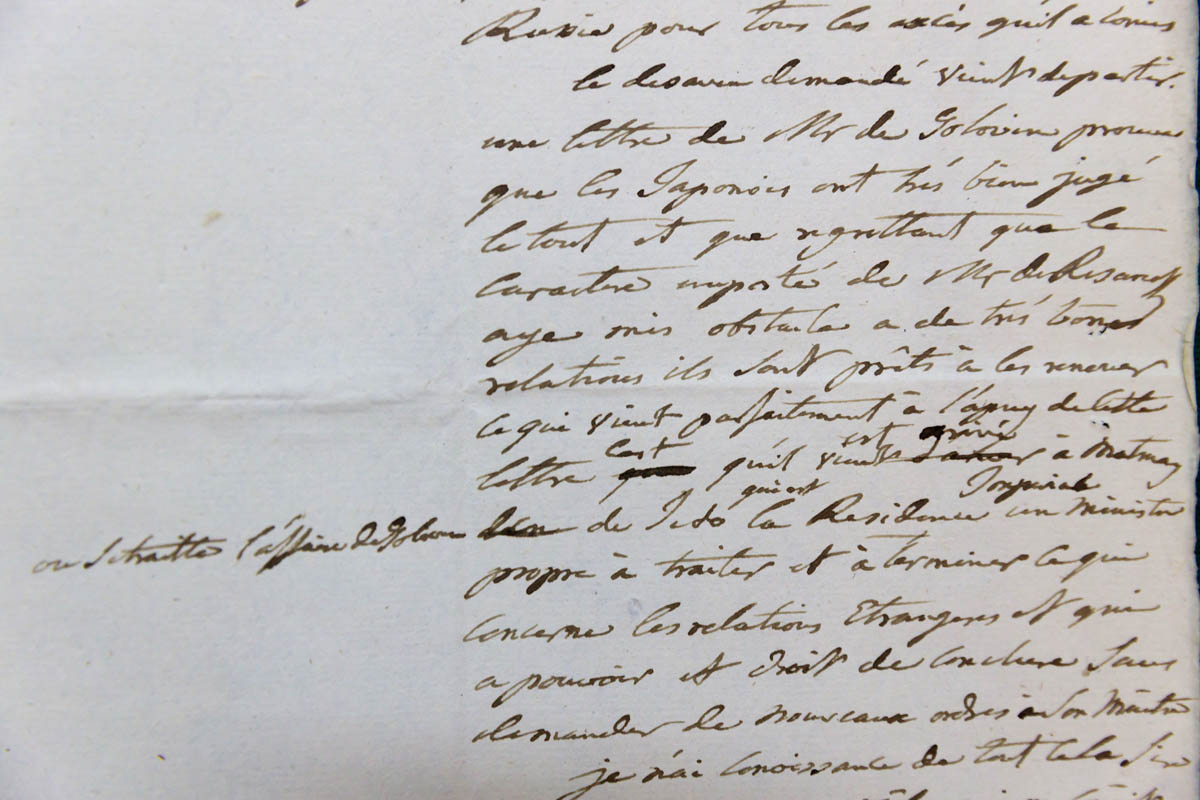 Russie pour tous les excès qu'il a comis
le desaveu demandé vient de partir.
une lettre de Mr de Golovin prouve
que les Japonois ont trés bien jugé
le tout et que regrettant que le
caractere emporté de Mr de Resanoff
aye mis obstacle a de trés bones
relations ils sont prêts à les renouer
ce qui vient parfaitement à l'apuy de cette
lettre c'est qu'il vient est arivé à Matmay
ou se traitte l'affaire de Golovin de Jedo qui est la Residence Imperiale un Ministre
propre à traiter et à terminer ce qui
concerne les relations Etrangeres et qui
a pouvoir et droit de conclure sans
demander de nouveaux ordres à son Maitre
je n'ai conoissance de tout cela Sire